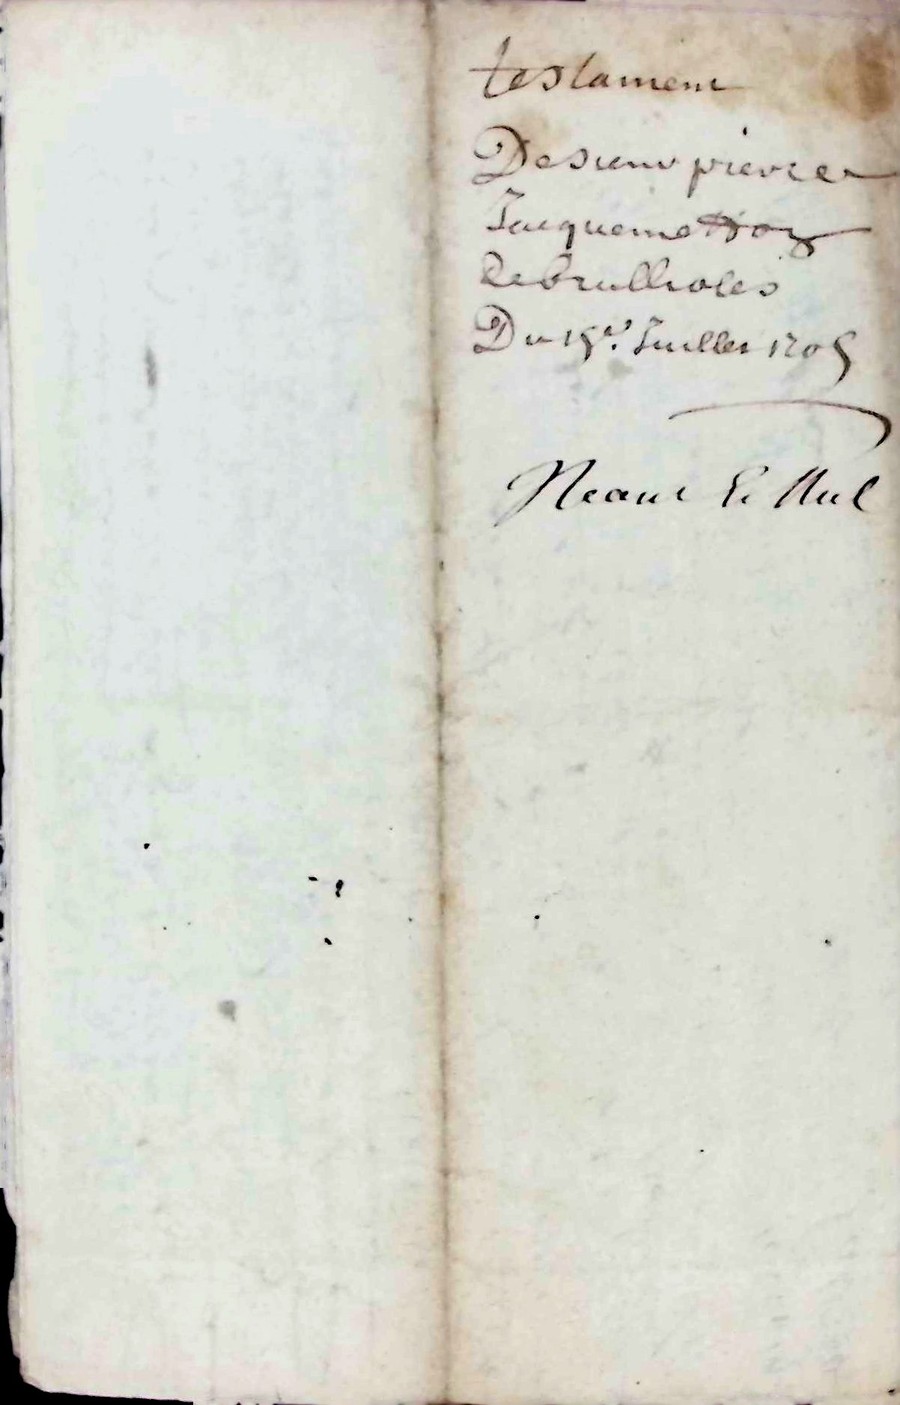 testament
De sieur pierre
Jacquemetton
de brullioles
Du 19e. Juillet 1705
Neant Et Nul